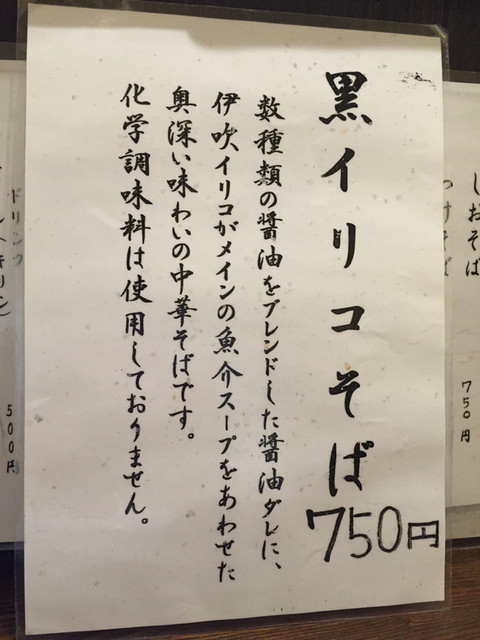 黒イリコそば
750円
数種類の醤油をブレンドした醤油ダレに、
伊吹イリコがメインの魚介スープをあわせた
奥深い味わいの中華そばです。
化学調味料は使用しておりません。
しおそば
つけそば
750円
ドリンク
キリン
500円